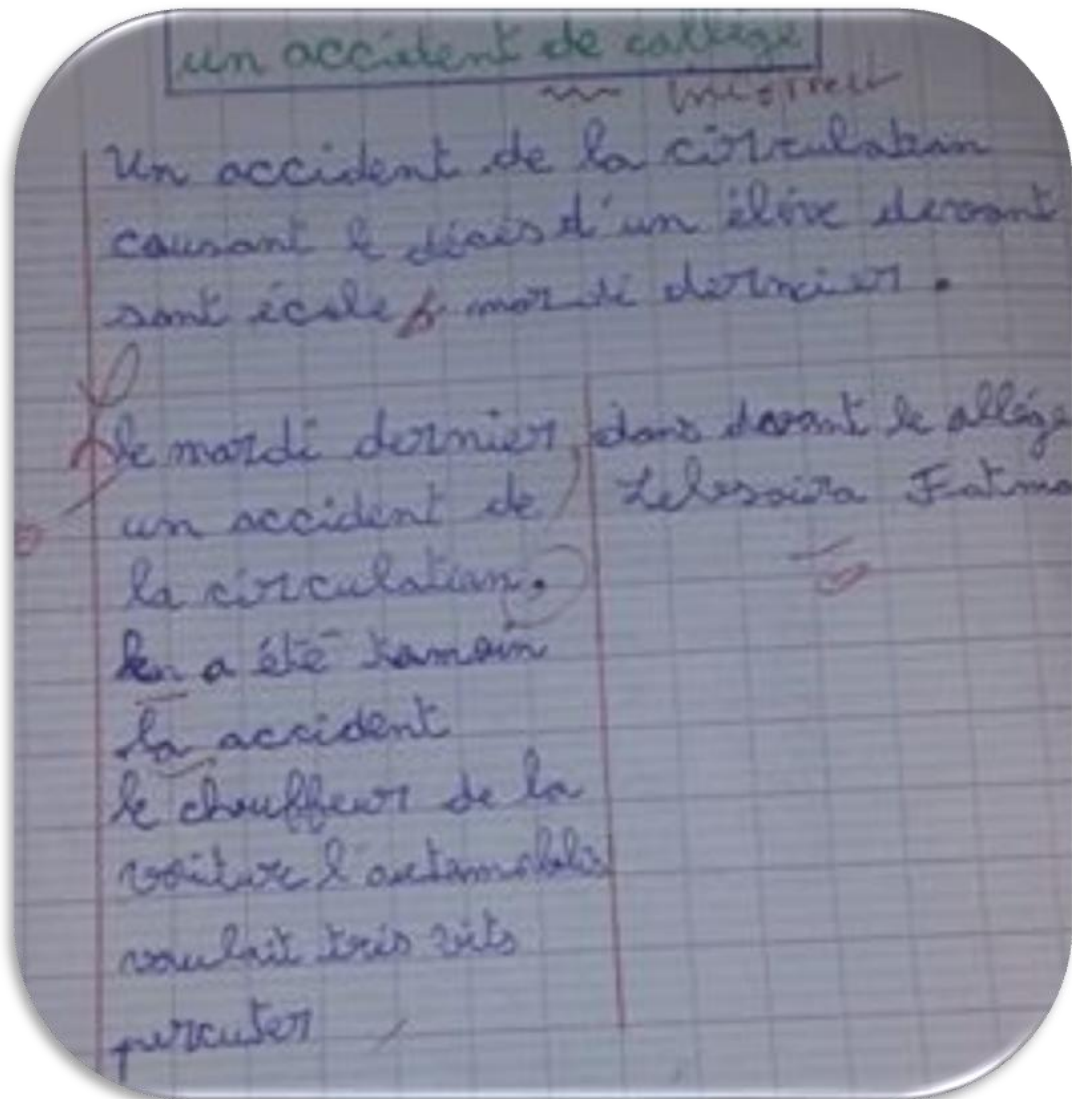 un accident de collège
incorrect
Un accident de la circulation
causant le décés d'un élève devant
sont école mardi dernier.
le mardi dernier,
un accident de
la circulation.
a été
la accident
le chouffeur de la
voiture l'automobilis
roulait trés vits
percuter
dans devant le collège
Fatma